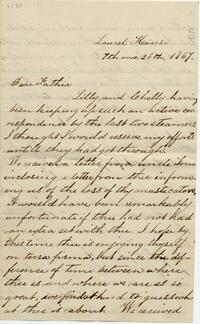 Laurel House.
7th mo. 28th, 1867.
Dear Father
Lilly and Chelly having
been keeping up such an active cor-
respondence by the last two steamers,
I thought I would reserve my efforts
until they had got through.
We received a letter from uncle Tom
inclosing a letter from thee informing
us of the loss of thy masticators.
It would have been remarkably
unfortunate if thee had not had
an extra set with thee. I hope by
this time thee is enjoying thyself
on terra firma, but since the dif-
ference of time between where
thee is and where we are is so
great, we find it hard to guess what
thee is about. We received